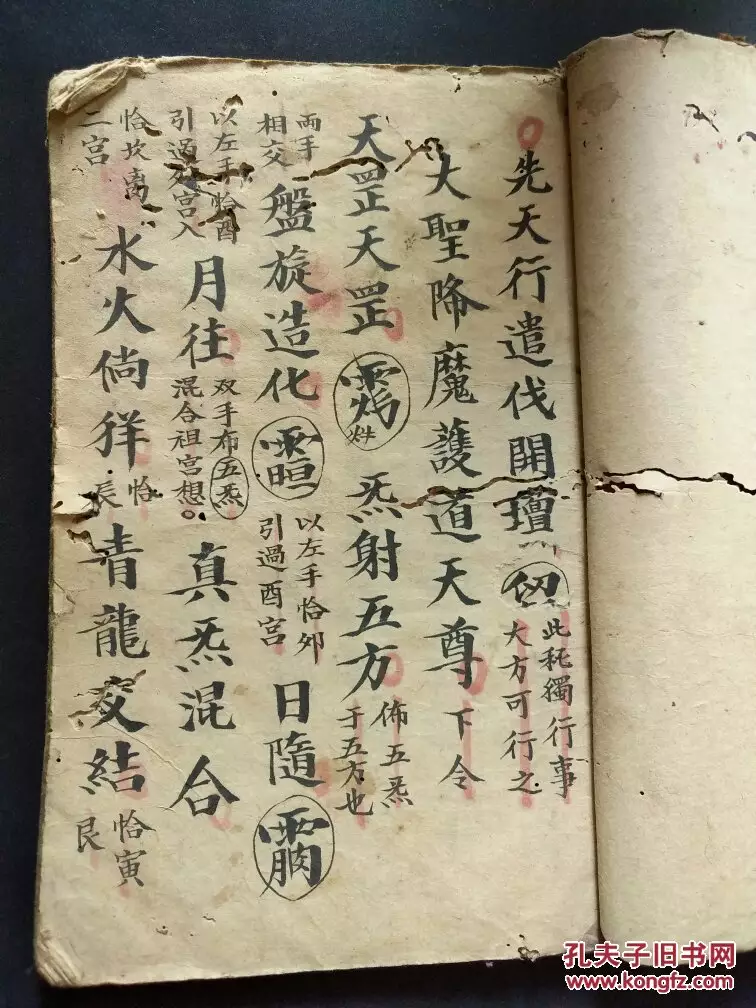 先天行遣伐開壇 此秏獨行事大方可行之
大聖降魔護道天尊下令
天罡天罡 炁射五方 佈五炁于五方也
両手相交 盤旋造化 以左手恰夘引過酉宮 日隨
以左手恰酉引過夘宮入 月往 双手布五炁混合祖宮想。 真炁混合
恰坎离二宮 水火徜徉 恰辰 青龍交結 恰寅艮
孔夫子旧书网
www.kongfz.com